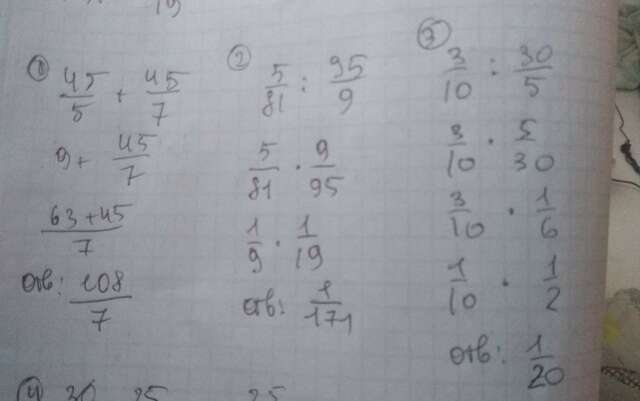 19
① 45/5 + 45/7
9 + 45/7
63+45/7
отв: 108/7
② 5/81 : 95/9
5/81 · 9/95
1/9 · 1/19
отв: 1/171
③ 3/10 : 30/5
3/10 · 5/30
3/10 · 1/6
1/10 · 1/2
отв: 1/20
④ 30 25 25